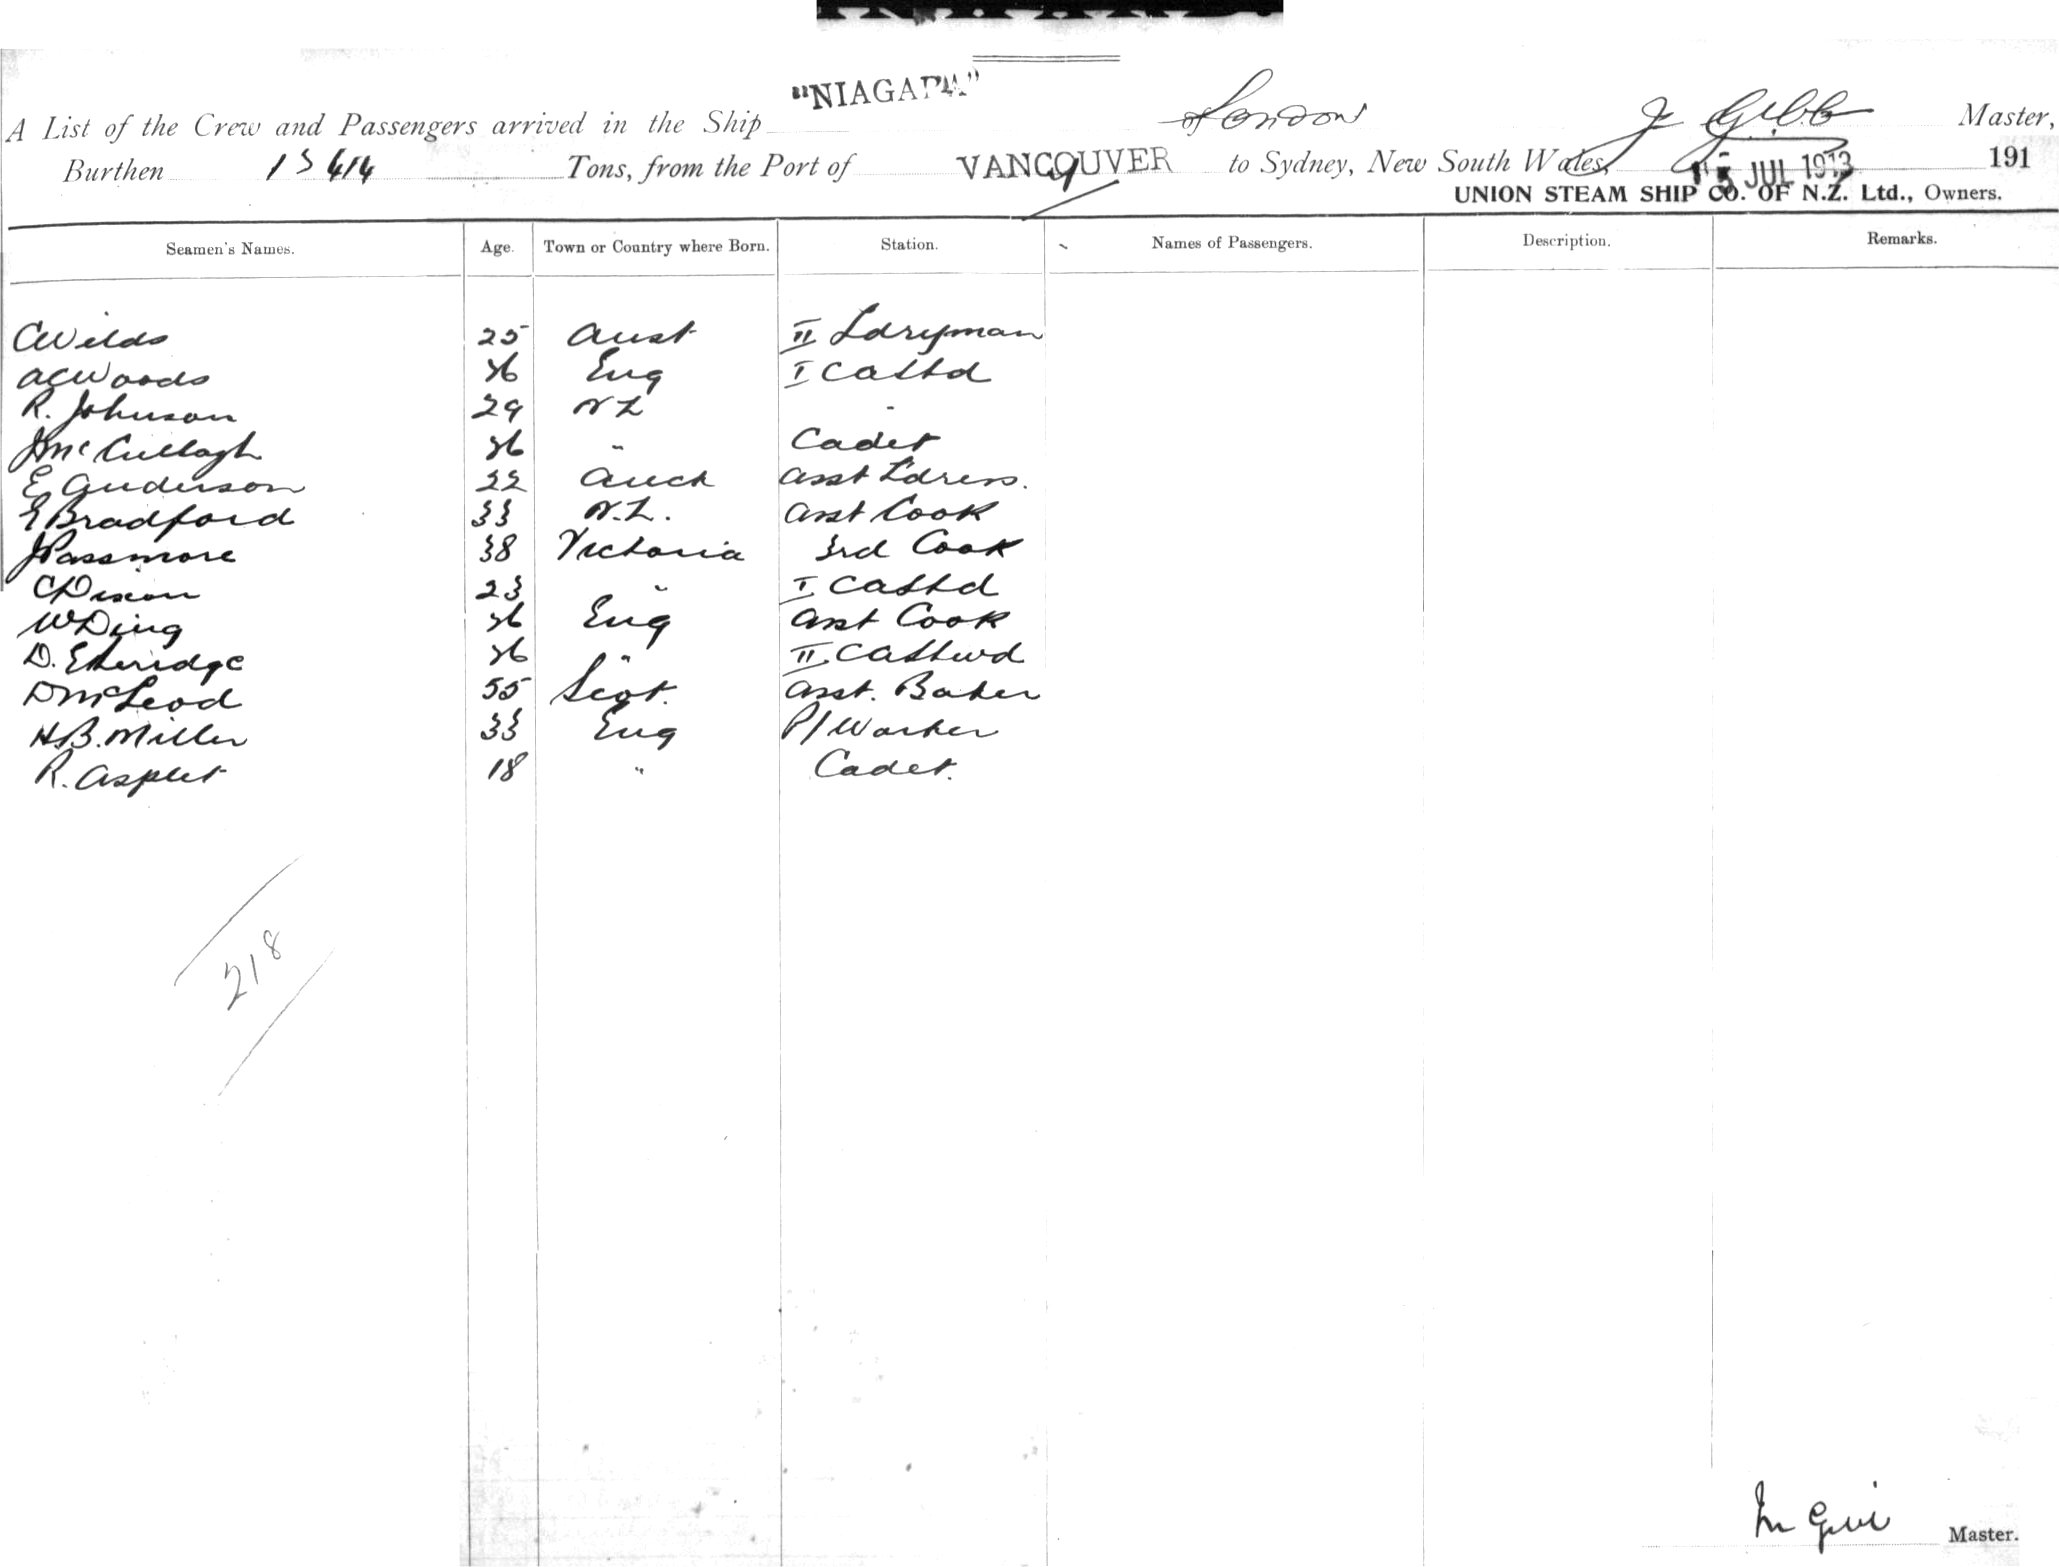 "NIAGARA"
A List of the Crew and Passengers arrived in the Ship of London J Gibb Master,
Burthen 13414 Tons, from the Port of VANCOUVER to Sydney, New South Wales, 15 JUL 1913 191
UNION STEAM SHIP CO. OF N.Z. Ltd., Owners.
Seamen's Names. Age. Town or Country where Born. Station. Names of Passengers. Description. Remarks.
C Wilds 25 Aust II Ldryman
A C Woods Eng I C A Std
R. Johnson 29 N Z -
J McCullagh " Cadet
E Anderson 22 Auck Asst Ldress.
E Bradford 33 N.Z. Asst Cook
J Passmore 38 Victoria 3rd Cook
C Dixon 23 " I C A Std
W Ding Eng Asst Cook
D. Etheridge " II C A Stwd
D McLeod 55 Scot. Asst. Baker
H.B. Miller 33 Eng P/Washer
R. Asplet 18 " Cadet.
218
Master.